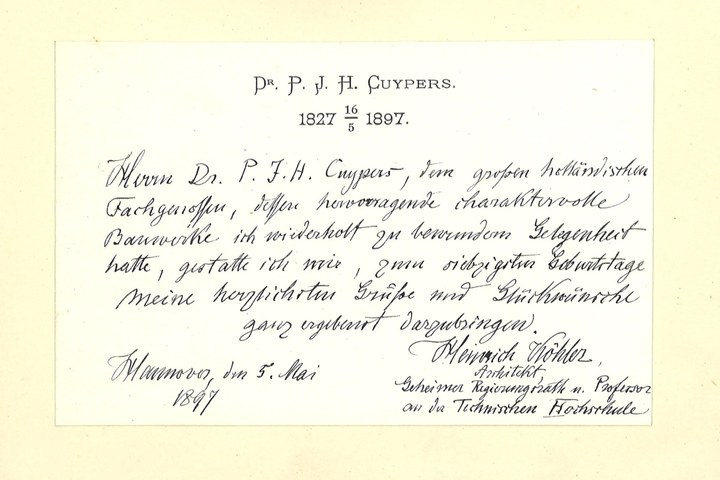 DR. P. J. H. CUYPERS.
1827 16/5 1897.
Herrn Dr. P. J. H. Cuypers, dem großen holländischen
Fachgenossen, dessen hervorragende charaktervolle
Bauwerke ich wiederholt zu bewundern Gelegenheit
hatte, gestatte ich mir, zum siebzigsten Geburtstage
meine herzlichsten Grüße und Glückwünsche
ganz ergebenst darzubringen.
Heinrich Köhler,
Architekt,
Geheimer Regierungsrath u. Professor
an der Technischen Hochschule
Hannover, den 5. Mai
1897